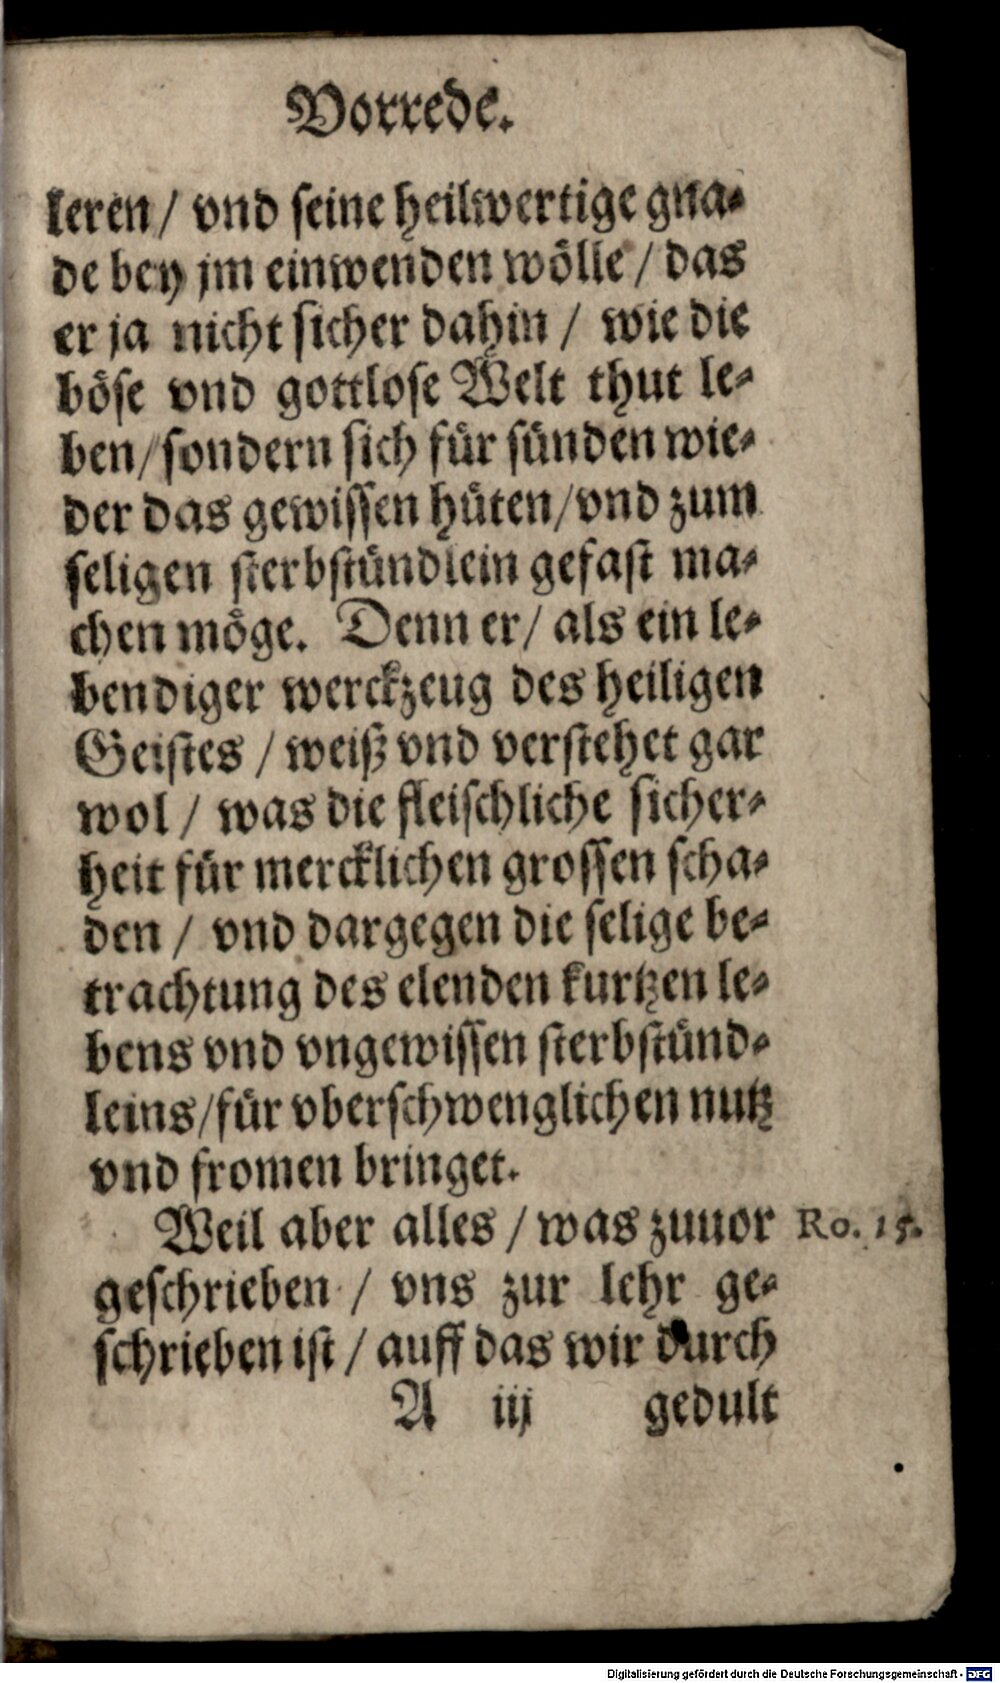 Vorrede.
keren / vnd seine heilwertige gna-
de bey jm einwenden wölle / das
er ja nicht sicher dahin / wie die
böse vnd gottlose Welt thut le-
ben / sondern sich für sünden wie-
der das gewissen hüten / vnd zum
seligen sterbstündlein gefast ma-
chen möge. Denn er / als ein le-
bendiger werckzeug des heiligen
Geistes / weiß vnd verstehet gar
wol / was die fleischliche sicher-
heit für mercklichen grossen scha-
den / vnd dargegen die selige be-
trachtung des elenden kurtzen le-
bens vnd vngewissen sterbstünd-
leins / für vberschwenglichen nutz
vnd fromen bringet.
Weil aber alles / was zuuor Ro. 15.
geschrieben / vns zur lehr ge-
schrieben ist / auff das wir durch
A iij gedult
Digitalisierung gefördert durch die Deutsche Forschungsgemeinschaft - DFG